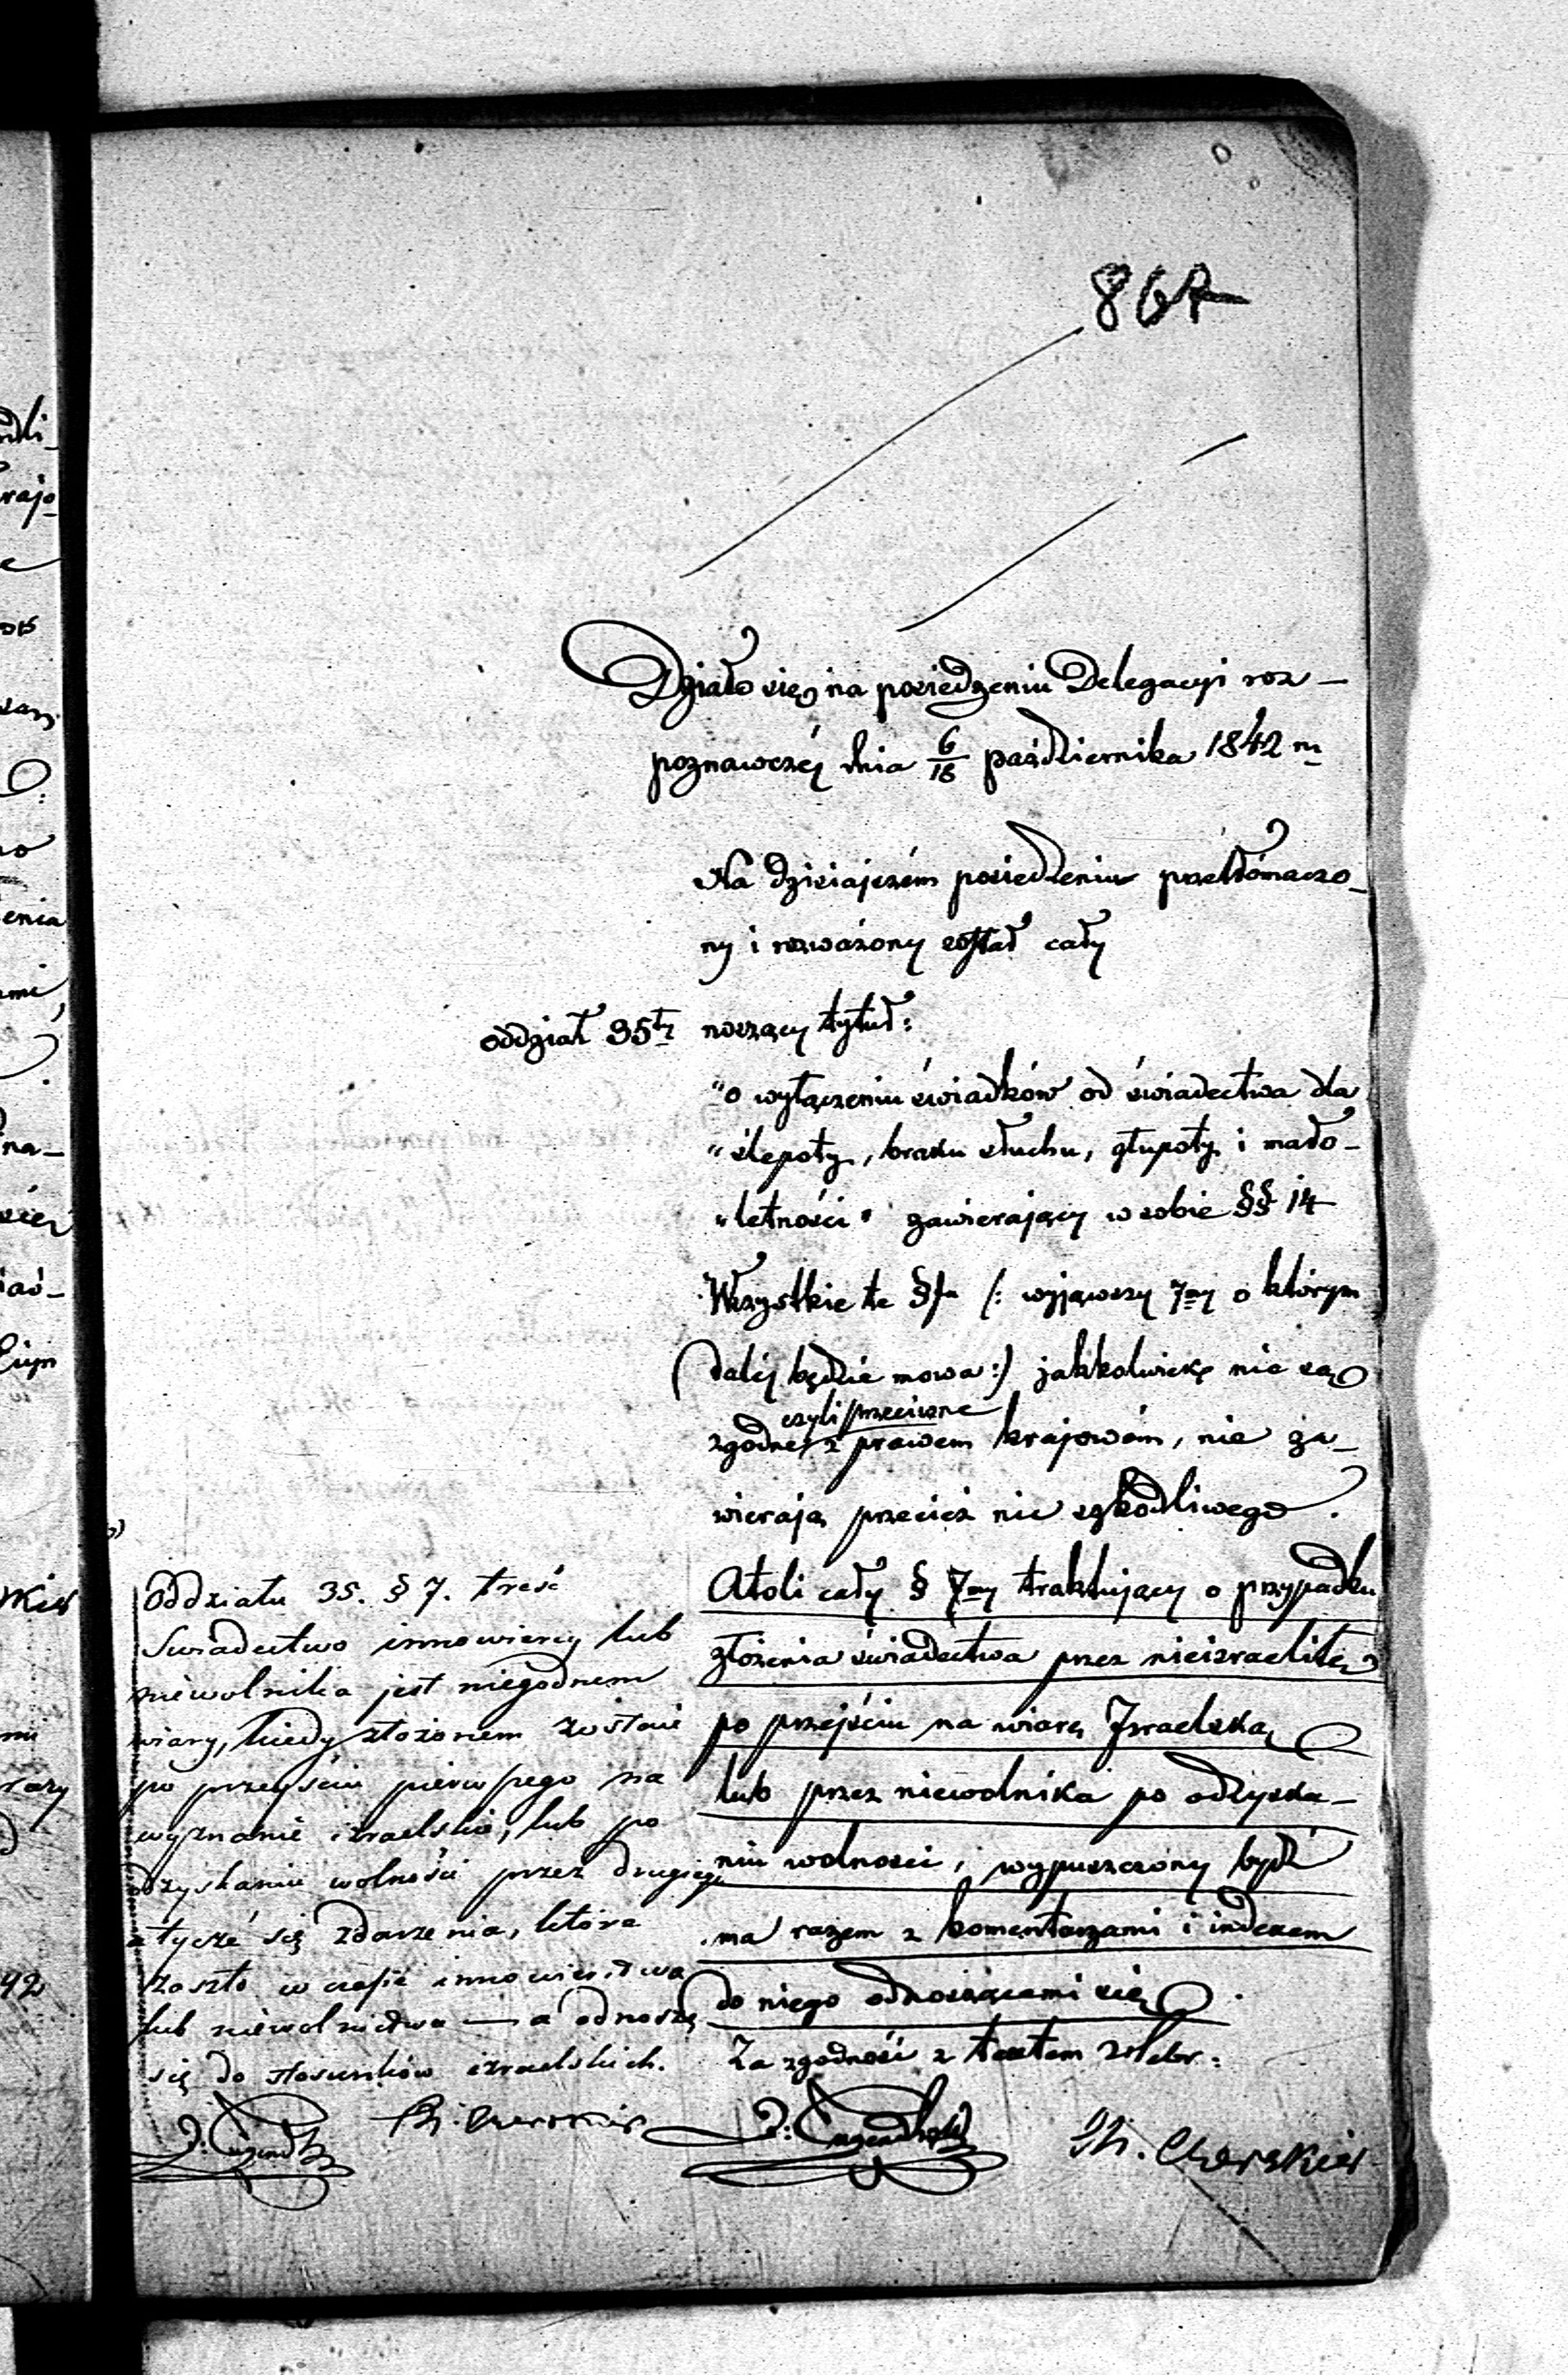 867
Działo się na posiedzeniu Delegacyi roz-
poznawczéj dnia 6/18 października 1842 r.
Na dzisiajszém posiedzeniu przetłómaczo-
ny i rozważony został cały
oddział 35ty noszący tytuł:
"o wyłączeniu świadków od świadectwa dla
"ślepoty, braku słuchu, głupoty i mało-
"letności" zawierający w sobie §§ 14
Wszystkie te §fy /: wyjąwszy 7my o którym
daléj będzie mowa :/ jakkolwiek nie są
czyli przeciwne
zgodne z prawem krajowém, nie za-
wierają przecież nic szkodliwego.
Atoli cały § 7my traktujący o przypadku
złożenia świadectwa przez nieizraelitę
po przejściu na wiarę Izraelską
lub przez niewolnika po odzyska-
niu wolności, wypuszczony bydź
ma razem z komentarzami i indexem
do niego odnoszącemi się.
Za zgodność z textem hebr:
Oddziału 35. § 7. treść
Swiadectwo innowiercy lub
niewolnika jest niegodnem
wiary, kiedy złożonem zostanie
po przejściu pierwszego na
wyznanie izraelskie, lub po
odzyskaniu wolności przez drugiego
a tyczé się zdarzenia, które
zaszło w czasie innowierstwa
lub niewolnictwa — a odnoszą
się do stosunków izraelskich.